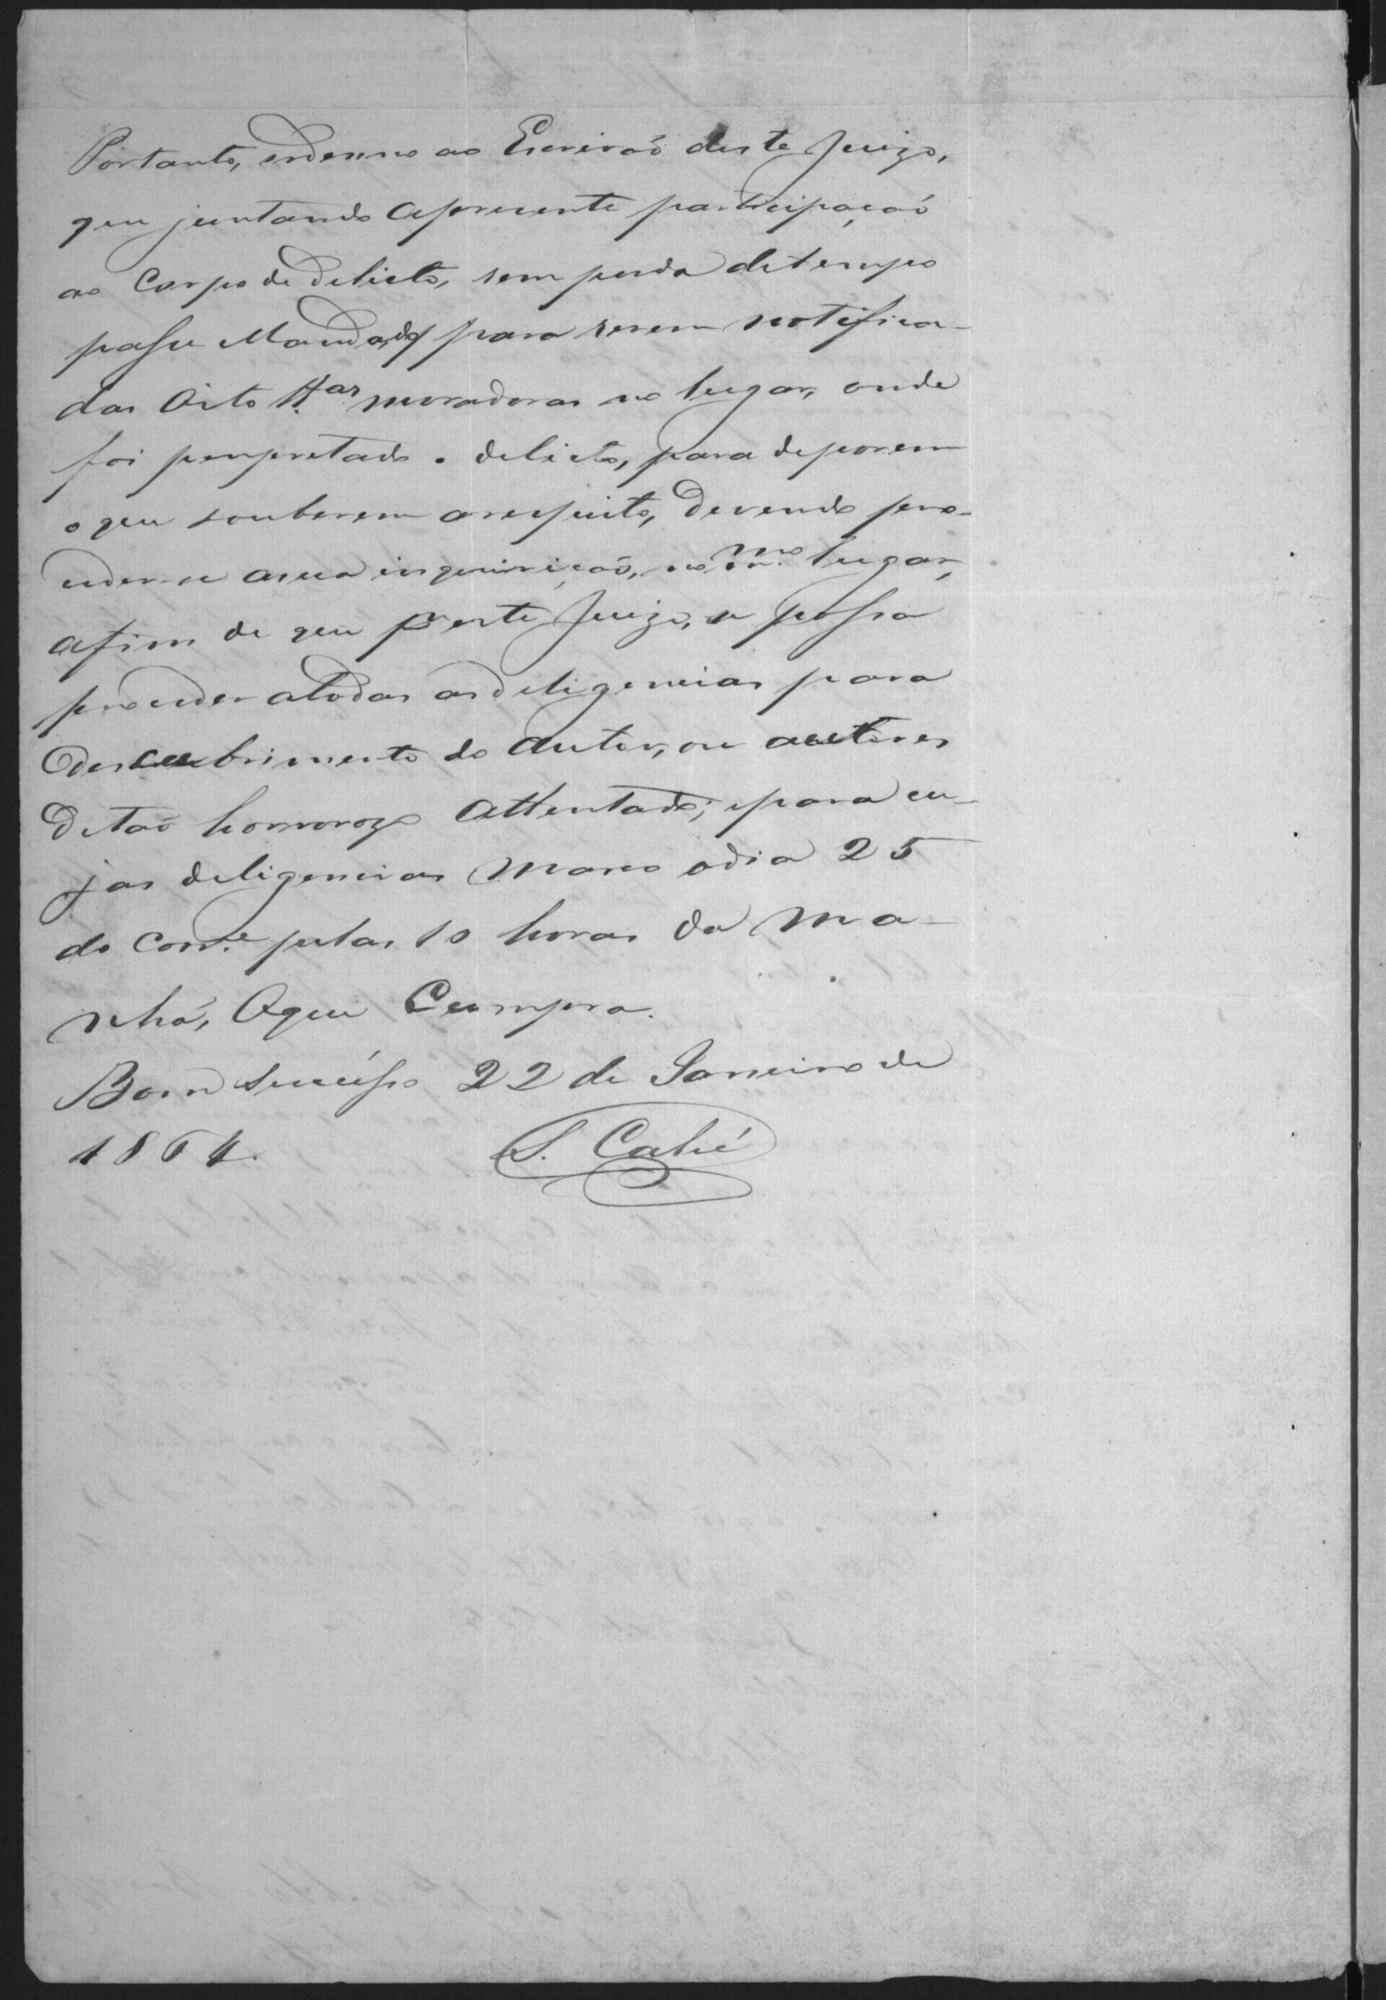 Portanto, ordenno ao Escrivaõ deste Juizo,
que juntando apresente participaçaõ
ao Corpo de Delicto, sem perda de tempo
passe Mandado para serem notifica-
das Oito tt.as moradoras no lugar, onde
foi perpretado o delicto, para deporem
o que souberem arespeito, Devendo pro-
ceder-se asua inquiriçaõ, no m.mo lugar,
afim de que por este Juizo, se possa
proceder atodas as deligencias para
Descubrimento do autor, ou autores
de taõ horrorozo attentado; epara cu-
jas deligencias marco odia 25
do corr.e pelas 10 horas da ma-
nhã, Oque Cumpra.
Bom Succésso 22 de Janeiro de
1864.
S. Calié